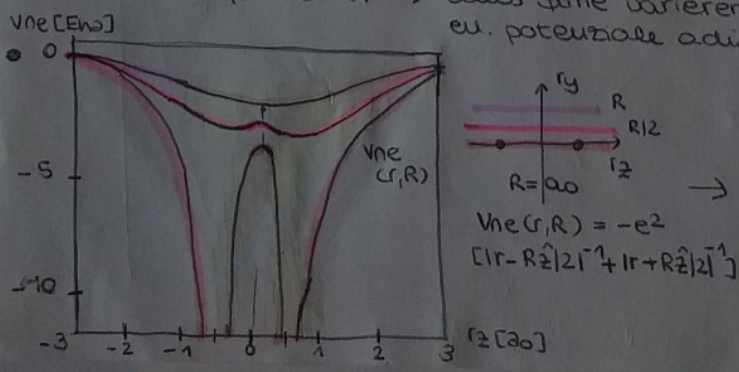 varieren
eu. potenziale adi
Vne [Eh0]
0
-5
-10
-3 -2 -1 0 1 2 3
rz [a0]
Vne
(r,R)
ry
R
R/2
rz
R=a0
→
Vne(r,R) = -e²
[|r-Rẑ/2|⁻¹+|r+Rẑ/2|⁻¹]